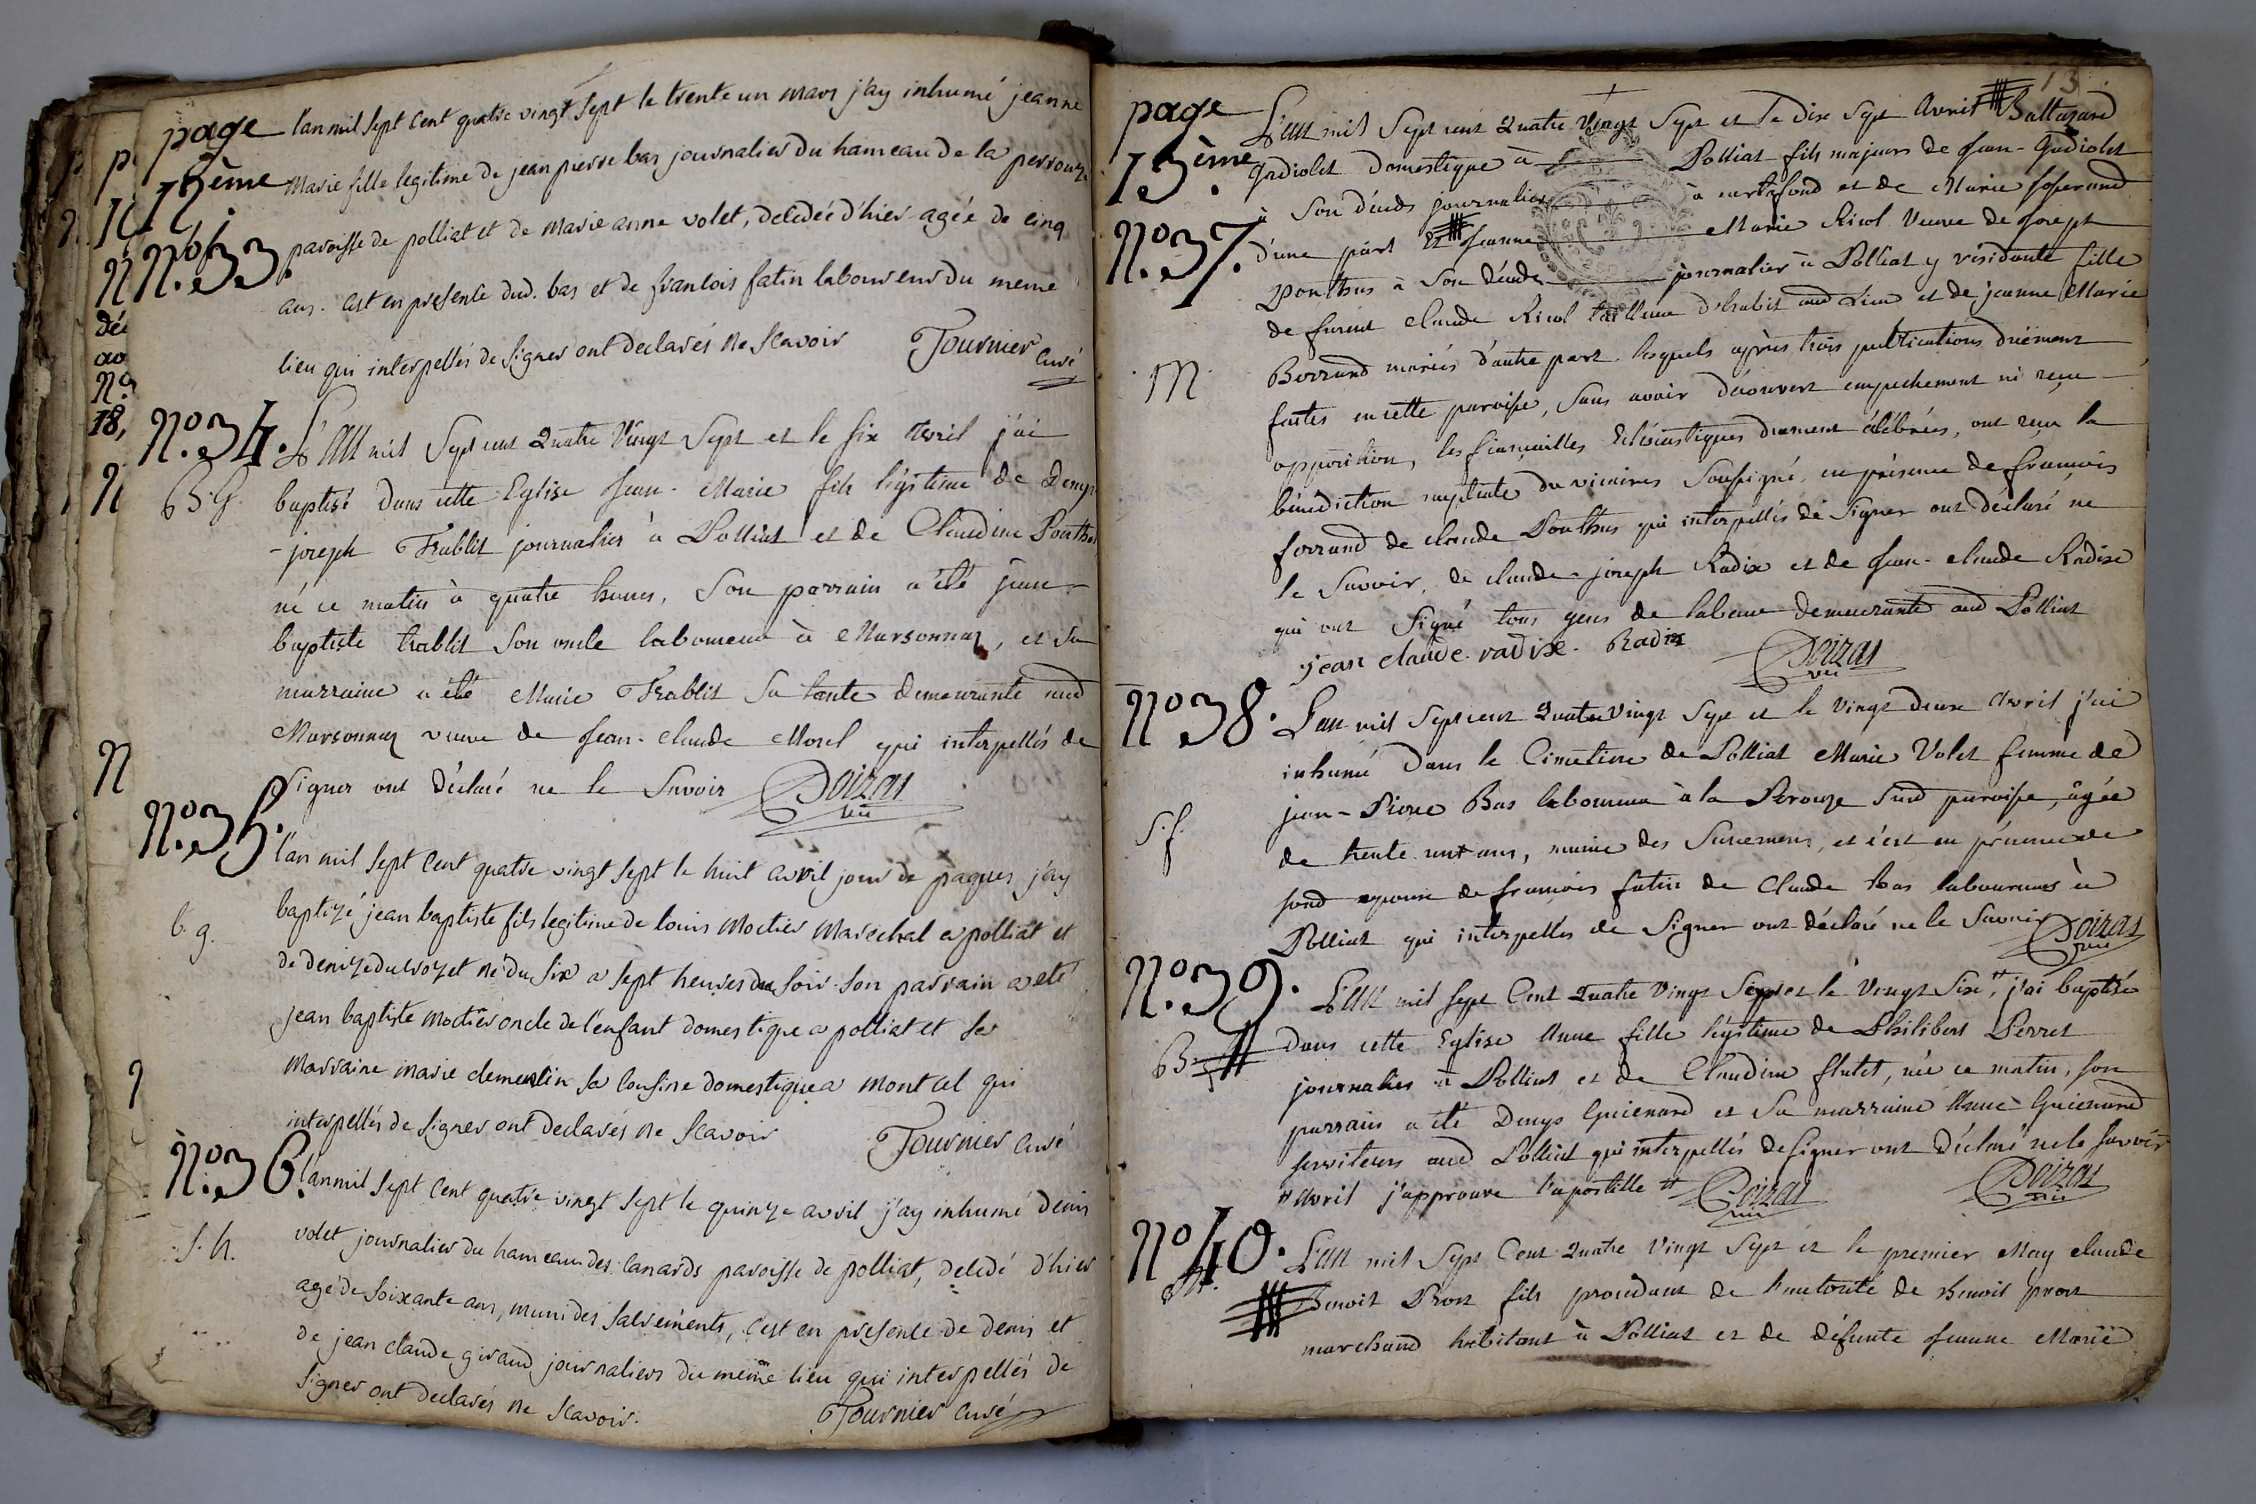 page
12ème
l'an mil sept cent quatre vingt sept le trente un mars j'ay inhumé jeanne
marie fille legitime de jean pierre bas journalier du hameau de la perrouze
N.º 33.
paroisse de polliat et de marie anne volet, decedeé d'hier agée de cinq
ans. c'est en presence dud. bas et de francois fatin laboureur du meme
lieu qui interpellés de signer ont declarés ne scavoir Tournier curé
N.º 34.
L'an mil Sept cent Quatre Vingt Sept et le six Avril j'ai
B. G.
baptisé dans cette Eglise Jean-Marie fils légitime de Denys
-joseph Trablit journalier à Polliat et de Claudine Ponthus
né ce matin à quatre heures. Son parrain a été jean-
baptiste trablit son oncle laboureur à Marsonnaz, et sa
marraine a été Marie Trablit sa tante demeurante aud
Marsonnaz veuve de Jean-Claude Morel qui interpellés de
signer ont déclaré ne le Savoir Doizas vic
N.º 35.
l'an mil sept cent quatre vingt sept le huit avril jour de paques j'ay
b. g.
baptizé jean baptiste fils legitime de louis moctier marechal a polliat et
de denize duvozet né du six a sept heures du soir. son parrain a eté
jean baptiste moctier oncle de l'enfant domestique a polliat et sa
marraine marie clementin sa cousine domestique a montcel qui
interpellés de signer ont declarés ne scavoir Tournier curé
N.º 36.
l'an mil sept cent quatre vingt sept le quinze avril j'ay inhumé denis
S. h.
volet journalier du hameau des canards paroisse de polliat, decedé d'hier
agé de soixante ans, muni des sacrements, c'est en presence de denis et
de jean claude giraud journaliers du même lieu qui interpellés de
signer ont declarés ne scavoir. Tournier curé
13
page
13ème
L'an mil Sept cent Quatre Vingt Sept et le dix Sept Avril Baltazard
Gadiolet domestique à Polliat fils majeur de Jean-Gadiolet
N.º 37.
à son décès journalier à curtafond et de Marie Joserand
d'une part Et Jeanne Marie Ricol Veuve de joseph
Ponthus à son décès journalier à Polliat y résidante fille
de furent Claude Ricol tailleur d'habit aud Lieu et de jeanne Marie
M
Borrand mariés d'autre part. lesquels après trois publications duëment
faites en cette paroisse, sans avoir découvert empechement ni reçu
opposition, les fiançailles Eclésiastiques duement célébrées, ont reçu la
bénédiction nuptiale du vicaire Soussigné, en présence de francois
ferrand de claude Ponthus qui interpellés de Signer ont déclaré ne
le Savoir, de claude-joseph Radix et de Jean-claude Radix
qui ont Signé tous gens de labeur demeurants aud Polliat
jean claude. radix. Radix Doizas vic
N.º 38.
L'an mil Sept cent Quatre Vingt Sept et le Vingt deux Avril j'ai
inhumé dans le Cimetiere de Polliat Marie Volet femme de
S. f.
jean-Pierre Bas laboureur à la Perouze Sud paroisse, âgée
de trente-un ans, munie des Sacremens, et c'est en présence de
sond epoux de francois fatin de Claude Bas laboureurs à
Polliat qui interpellés de Signer ont déclaré ne le Savoir Doizas vic
N.º 39.
L'an mil Sept Cent Quatre Vingt Sept et le Vingt Six " j'ai baptisé
B.
dans cette Eglise Anne fille légitime de Philibert Perret
journalier à Polliat et de Claudine flutet, née ce matin, son
parrain a été Denys Guienard et sa marraine Anne Guienard
serviteurs aud Polliat qui interpellés de Signer ont déclaré ne le Savoir
" Avril j'approuve l'apostille " Doizas vic Doizas vic
N.º 40.
M.
L'an mil Sept Cent Quatre Vingt Sept et le premier May claude
Benoit Prost fils procédant de l'autorité de Benoit prost
marchand habitant à Polliat et de défunte Jeanne Marie